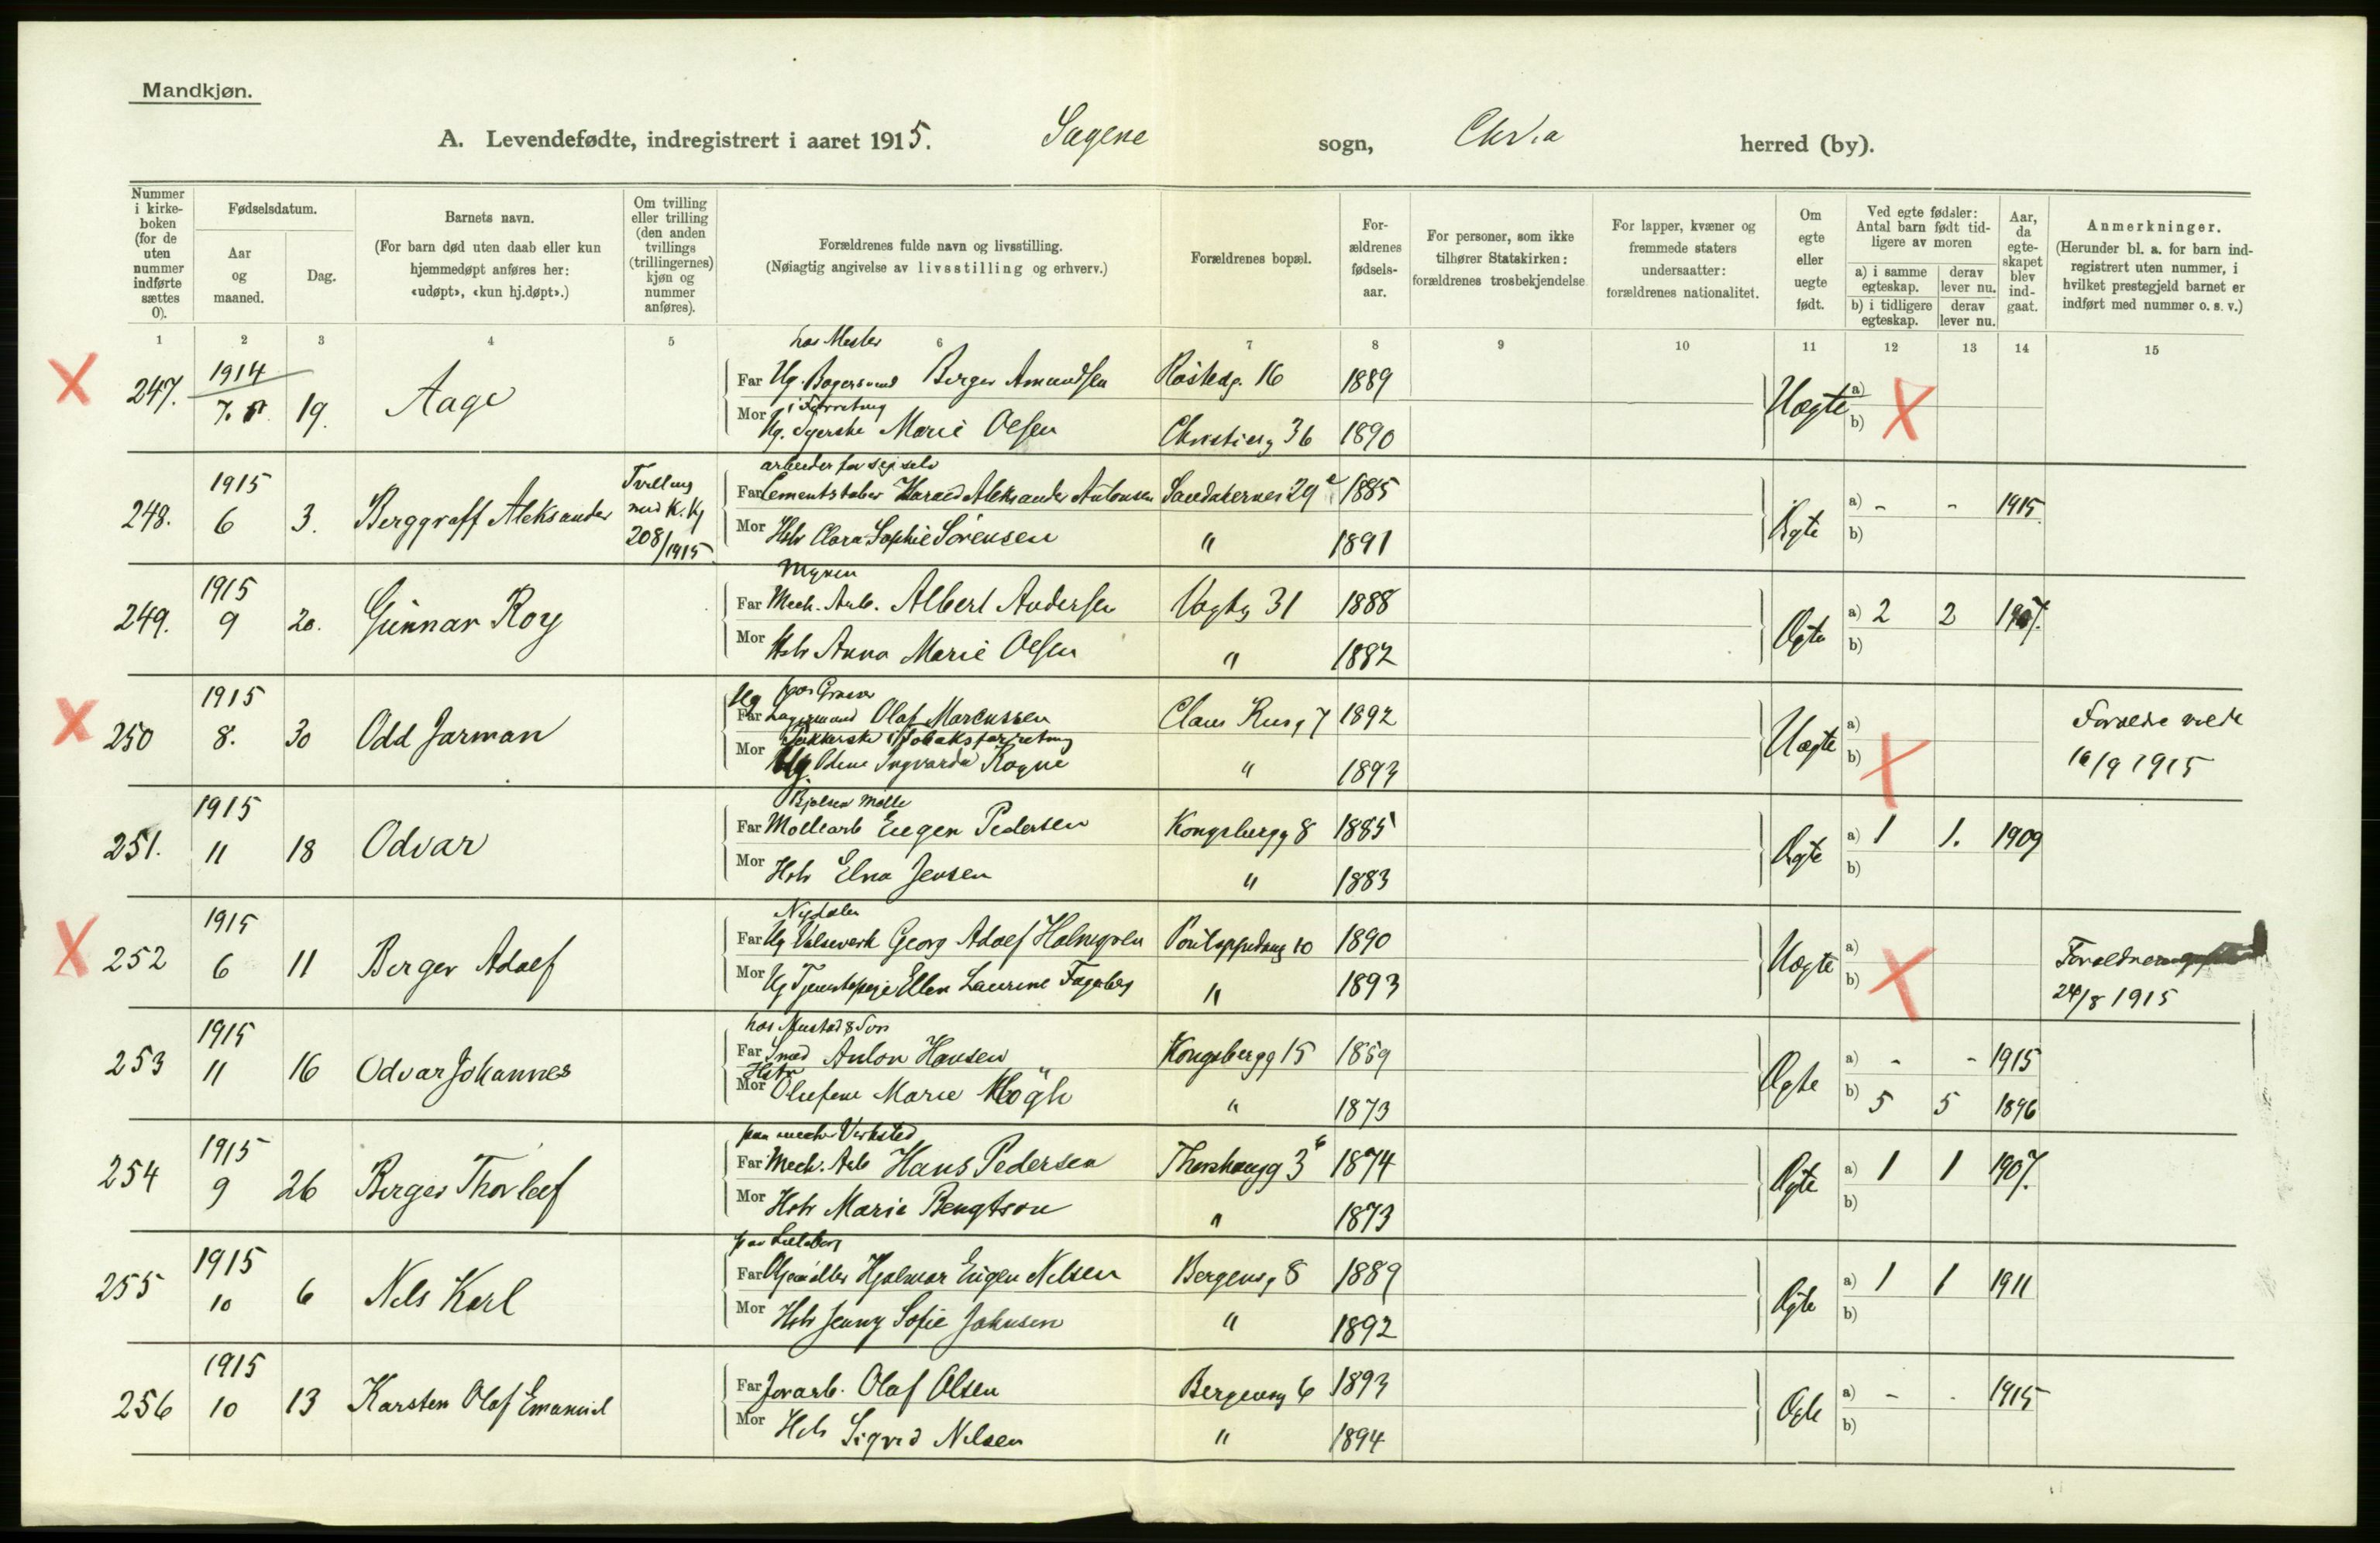 Mandkjøn.
A. Levendefødte, indregistrert i aaret 1915. Sagene sogn, Chr.a herred (by).
Nummer i kirkeboken (for de uten nummer indførte sættes 0).
Fødselsdatum.
Aar og maaned.
Dag.
Barnets navn.
(For barn død uten daab eller kun hjemmedøpt anføres her: «udøpt», «kun hj.døpt».)
Om tvilling eller trilling (den anden tvillings (trillingernes) kjøn og nummer anføres).
Forældrenes fulde navn og livsstilling.
(Nøiagtig angivelse av livsstilling og erhverv.)
Forældrenes bopæl.
Forældrenes fødselsaar.
For personer, som ikke tilhører Statskirken: forældrenes trosbekjendelse
For lapper, kvæner og fremmede staters undersaatter: forældrenes nationalitet.
Om egte eller uegte født.
Ved egte fødsler: Antal barn født tidligere av moren
a) i samme egteskap. derav lever nu.
b) i tidligere egteskap. derav lever nu.
Aar, da egteskapet blev indgaat.
Anmerkninger.
(Herunder bl. a. for barn indregistrert uten nummer, i hvilket prestegjeld barnet er indført med nummer o. s. v.)
1 2 3 4 5 6 7 8 9 10 11 12 13 14 15
hos Mester
247. 1914 7. 19. Aage
Far Ug. Birger Amundsen 16 1889
Uegte a) b)
Mor Ug. Syerske Marie Olsen Christiesg 36 1890
arbeider for sig selv
248. 1915 6 3. Berggraff Aleksander Tvilling med K. Kj 208/1915
Far Cementstøber Harald Aleksander Antonsen Sandakerveien 29 1885
Egte a) - - 1915 b)
Mor Hstr Clara Sophie Sørensen " 1891
Myren
249. 1915 9 20. Gunnar Roy
Far Mech. Arb. Albert Andersen Vogtsg 31 1888
Egte a) 2 2 b)
Mor Hstr Anna Marie Olsen " 1882
250 1915 8. 30 Odd Jarman
Ug
Far Lagermand Olaf Marcussen Claus Riisg 7 1892
Pakkerske i Tobaksforretning
Mor Ug. Ingvarda " 1893
Uegte a) b)
16/9 1915
Bjølsen Mølle
251. 1915 11 18 Odvar
Far Møllearb Eugen Pedersen Kongsbergg 8 1885
Egte a) 1 1. 1909 b)
Mor Hstr Elna Jensen " 1883
Nydalen
252 1915 6 11 Berger Adolf
Far Ug Valseverk Georg Adolf Pontoppidansg 10 1890
Mor Ug Ellen Laurine Fagerberg " 1893
Uegte a) b)
24/8 1915
hos Mustad & Søn
253 1915 11 16 Odvar Johannes
Far Smed Anton Hansen Kongsbergg 15 1869
Hstr
Mor Olufine Marie Høgh " 1873
Egte a) - - 1915
b) 5 5 1896
paa mech. Verksted
254 1915 9 26 Birger Thorleif
Far Mech. Arb Hans Pedersen Thorshaugg 3 b 1874
Egte a) 1 1 1907. b)
Mor Hstr Marie Bengtson " 1873
paa Lilleborg
255 1915 10 6 Nils Karl
Far Oljemøller Hjalmar Eugen Nilsen Bergensg 8 1889
Egte a) 1 1 1911 b)
Mor Hstr Jenny Sofie Johnsen " 1892
256 1915 10 13 Karsten Olaf Emanuel
Far Jernarb. Olaf Olsen Bergensg 6 1893
Egte a) - - 1915 b)
Mor Hstr Sigrid Nilsen " 1894